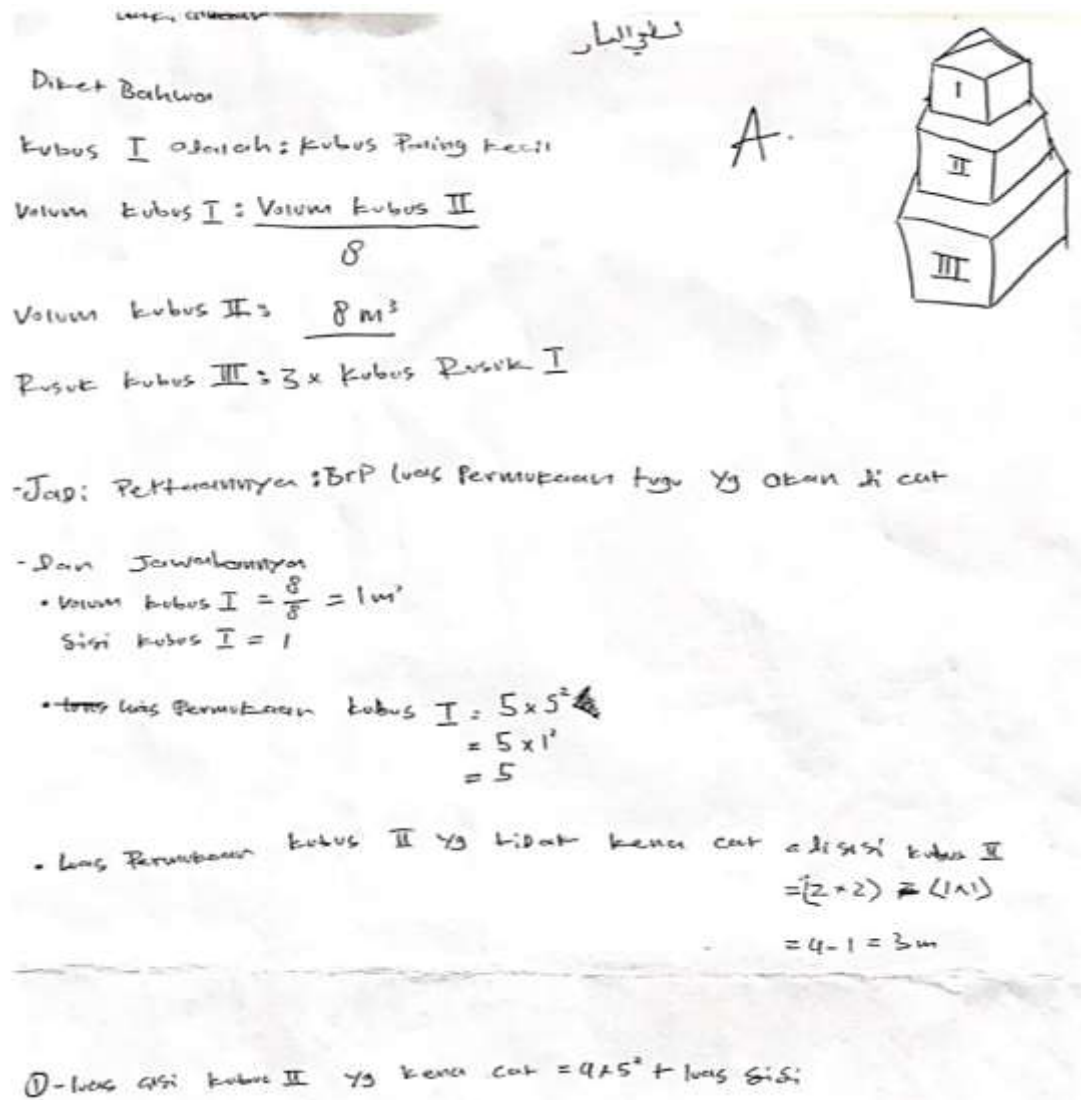 Diket Bahwa
A.
I
II
III
kubus I adalah : kubus Paling kecil
Volum kubus I : Volum kubus II
8
Volum kubus II : 8 m³
Rusuk kubus III : 3 x kubus Rusuk I
-Jadi Pertanyannya : BrP luas Permukaan tugu Yg akan di cat
- Dan Jawabannya
• Volum kubus I = 8/8 = 1 m³
Sisi kubus I = 1
• luas Permukaan kubus I = 5 x 5²
= 5 x 1²
= 5
• Luas Permukaan kubus II Yg tidak kena cat disisi kubus II
= (2 × 2) - (1×1)
= 4 - 1 = 3 m
①-luas sisi kubus II Yg kena cat = 4 x 5² + luas sisi